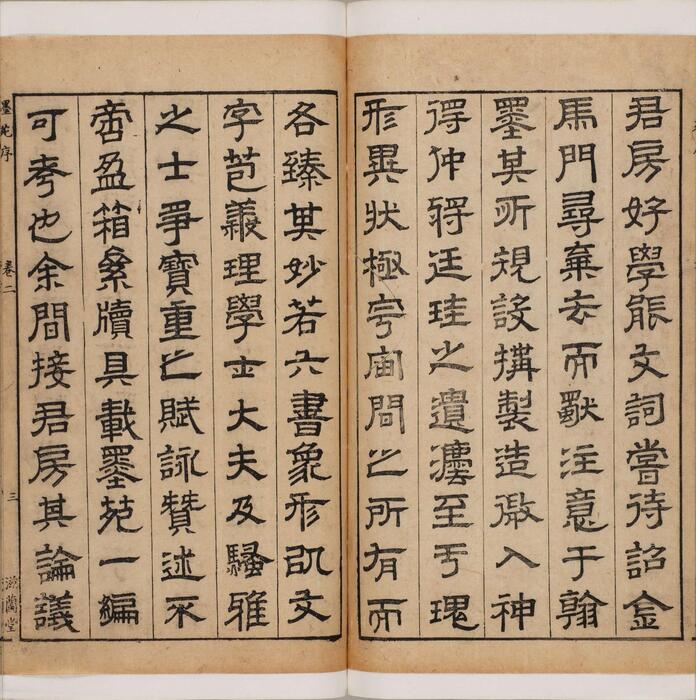 君房好學能文詞嘗待詔金
馬門尋棄去而獨注意于翰
墨其所規設搆製造微入神
得仲將廷珪之遺灋至于瑰
形異狀極宇宙間之所有而
各臻其妙若六書象形文
字苞義理學士大夫及騷雅
之士爭寶重之賦詠贊述不
啻盈箱絫牘具載墨苑一編
可考也余間接君房其論議
墨苑序 卷二 三 滋蘭堂